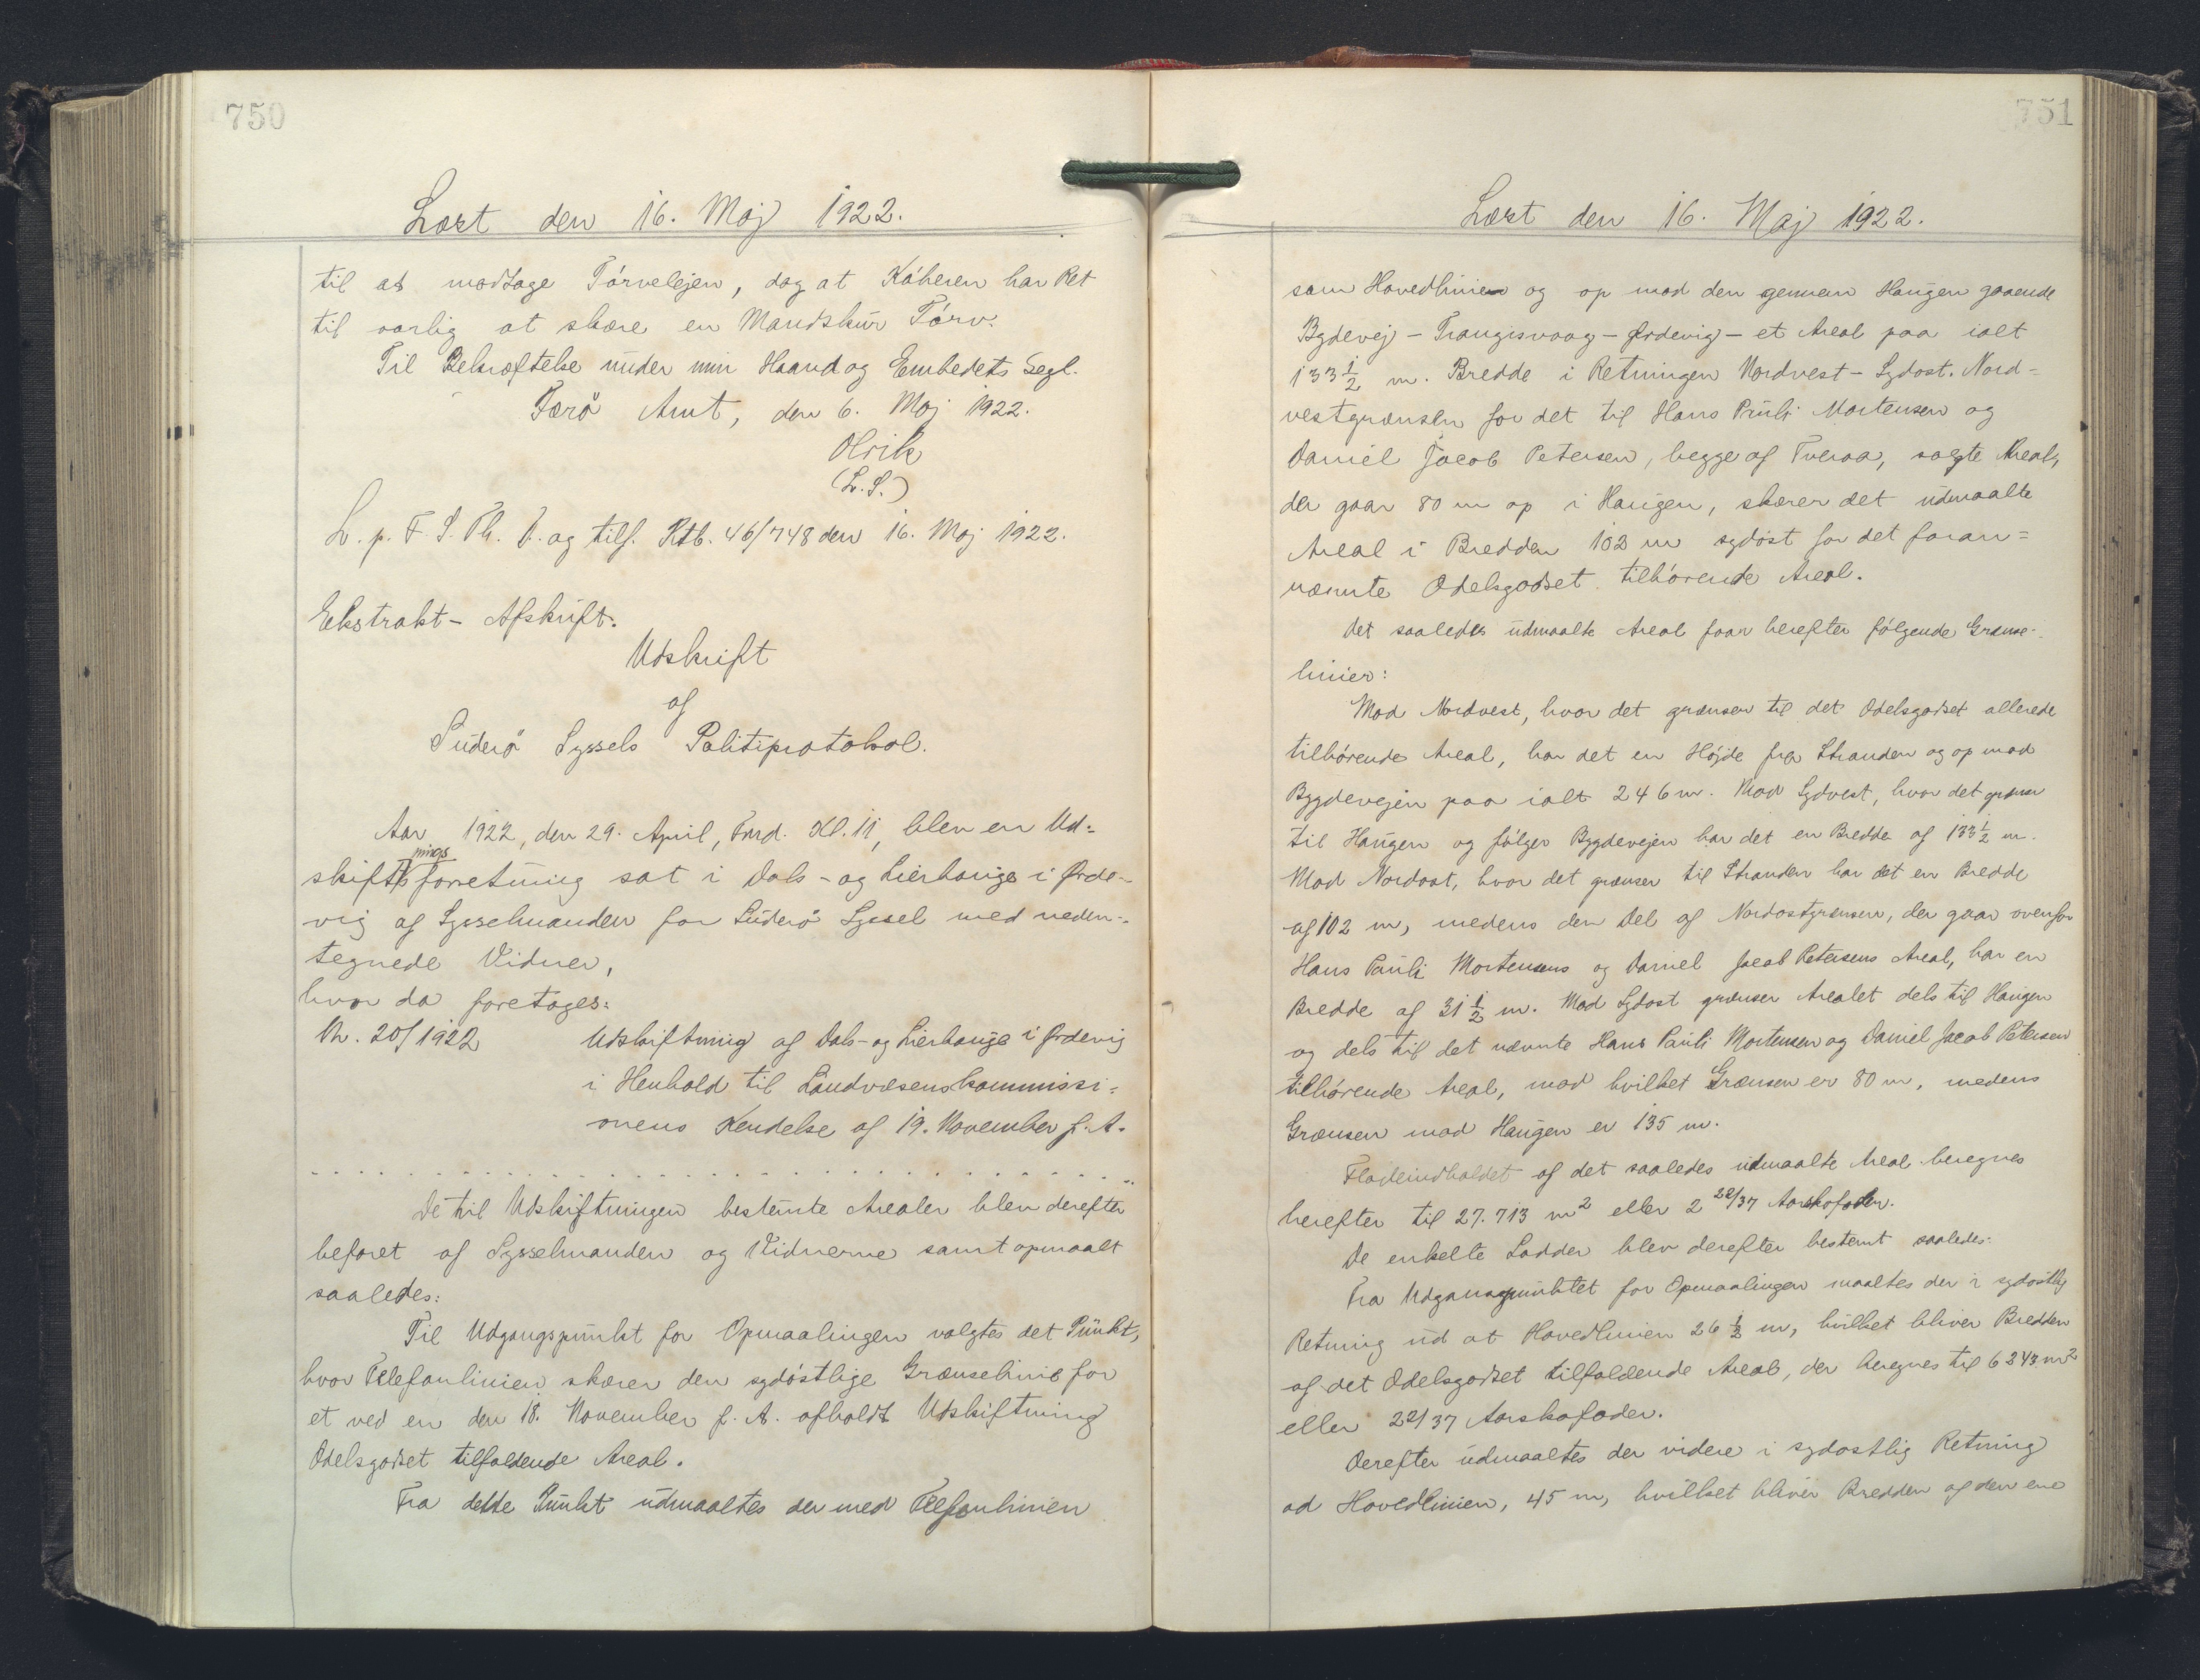 750
Læst den 16. Maj 1922.
til at modtage Tørvelejen, dog at Køberen har Ret
til aarlig at skære en Mandskur Tørv.
Til Bekræftelse under min Haand og Embedets Segl.
Færø Amt, den 6. Maj 1922.
Olrik
(L. S.)
L. p. F. S. Th. V. og tilf. Rtb. 46/748 den 16. Maj 1922.
Ekstrakt - Afskrift.
Udskrift
af
Suderø Syssels Politiprotokol.
Aar 1922, den 29. April, Fmd. Kl. 11, blev en Ud=
skiftningsforretning sat i Dals- og Lierhauge i Ørde-
vig af Sysselmanden for Suderø Syssel med neden-
tegnede Vidner,
hvor da foretages:
Nr. 20/1922 Udskiftning af Dals- og Lierhauge i Ørdevig
i Henhold til Landvæsenskommissi=
onens Kendelse af 19. November f. A.
De til Udskiftningen bestemte Arealer blev derefter
befaret af Sysselmanden og Vidnerne samt opmaalt
saaledes:
Til Udgangspunkt for Opmaalingen valgtes det Punkt,
hvor Telefonlinien skærer den sydøstlige Grænselinie for
et ved en den 18. November f. A. afholdt Udskiftning
Odelsgodset tilfaldende Areal.
Fra dette Punkt udmaaltes der med Telefonlinien
751
Læst den 16. Maj 1922.
som Hovedlinien og op mod den gennem Haugen gaaende
Bygdevej - Trangisvaag - Ørdevig - et Areal paa ialt
133 1/2 m. Bredde i Retningen Nordvest - Sydost. Nord=
vestgrænsen for det til Hans Pauli Mortensen og
Daniel Jacob Petersen, begge af Tveraa, solgte Areal,
der gaar 80 m op i Haugen, skærer det udmaalte
Areal i Bredden 102 m sydøst for det foran=
nævnte Odelsgodset tilhørende Areal.
Det saaledes udmaalte Areal faar herefter følgende Grænse-
linier:
Mod Nordvest, hvor det grænser til det Odelsgodset allerede
tilhørende Areal, har det en Højde fra Stranden og op mod
Bygdevejen paa ialt 246 m. Mod Sydvest, hvor det grænser
til Haugen og følger Bygdevejen har det en Bredde af 133 1/2 m.
Mod Nordost, hvor det grænser til Stranden har det en Bredde
af 102 m, medens den Del af Nordostgrænsen, der gaar ovenfor
Hans Pauli Mortensens og Daniel Jacob Petersens Areal, har en
Bredde af 31 1/2 m. Mod Sydost grænser Arealet dels til Haugen
og dels til det nævnte Hans Pauli Mortensen og Daniel Jacob Petersen
tilhørende Areal, mod hvilket Grænsen er 80 m, medens
Grænsen mod Haugen er 135 m.
Fladeindholdet af det saaledes udmaalte Areal beregnes
herefter til 27.713 m2 eller 2 22/37 Aarskofoder.
De enkelte Lodder blev derefter bestemt saaledes:
Fra Udgangspunktet for Opmaalingen maaltes der i sydostlig
Retning ud at Hovedlinien 26 1/2 m, hvilket bliver Bredden
af det Odelsgodset tilfaldende Areal, der beregnes til 6243 m2
eller 22/37 Aarskofoder.
Derefter udmaaltes der videre i sydostlig Retning
ad Hovedlinien, 45 m, hvilket bliver Bredden af den ene